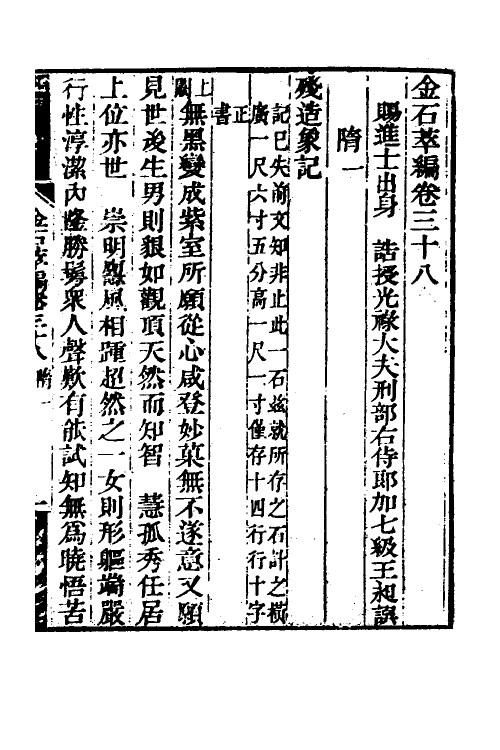 金石萃編卷三十八
賜進士出身　誥授光祿大夫刑部右侍郎加七級王昶譔
隋一
殘造象記
記已失前文知非止此一石茲就所存之石計之橫
廣一尺六寸五分高一尺一寸僅存十四行行十字
正書
上闕無黑變成紫室所願從心咸登妙菓無不遂意又願
見世後生男則狠如觀頂天然而知智　慧孤秀任居
上位亦世　崇明㲉風相踵超然之一女則形軀端嚴
行性淳潔內隆勝鬘衆人聲歎有能試知無爲曉悟苦
金石萃編卷三十八　隋一
一